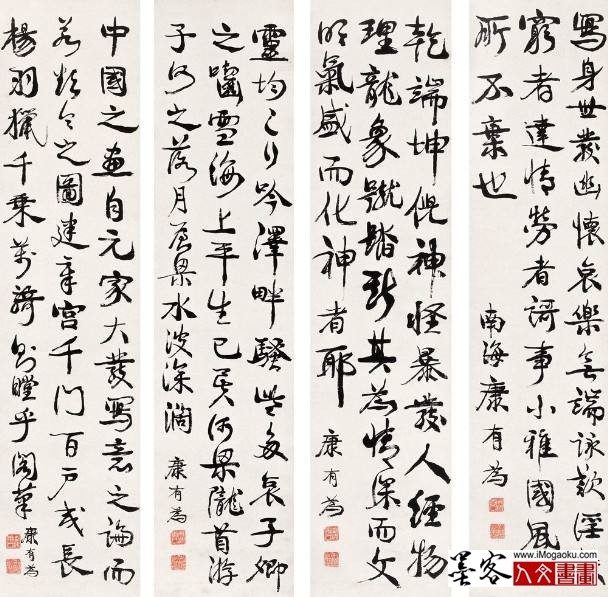 寫身世發幽懷哀樂無端詠歎淫
窮者達情勞者謌事小雅國風
所不棄也
南海康有為
乾端坤倪神怪暴發人經物
理龍象蹴踏斯其為情深而文
明氣盛而化神者耶
康有為
靈均之行吟澤畔騷些多哀子卿
之嚙雪海上平生已矣河梁隴首游
子何之落月屋梁水波深濶
康有為
中國之畫自元家大發寫意之論而
今之圖建章宮千門百万或長
楊羽獵千乘萬騎則瞠乎閣筆
康有為
墨客
www.iMogaoku.com
人文書畫